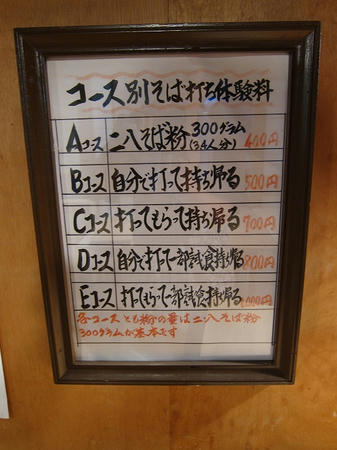 コース別そば打ち体験料
Aコース 二八そば粉 300グラム (3.4人分) 400円
Bコース 自分で打って持ち帰る 500円
Cコース 打ってもらって持ち帰る 700円
Dコース 自分で打って一部試食持ち帰る 800円
Eコース 打ってもらって一部試食持ち帰る 1000円
各コースとも粉の量は二・八そば粉
300グラムが基本です